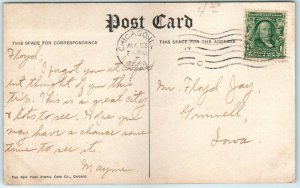 Post Card
THIS SPACE FOR CORRESPONDENCE
THIS SPACE IS FOR ADDRESS ONLY.
CHICAGO, ILL.
AUG 25
Floyd,
I forgot you at
but thought of you this
trip. This is a great city
& lots to see. Hope you
may have a chance some
time to see it.
Mayme
Mr. Floyd Jay,
Grinnell,
Iowa.
THE NEW YORK POSTAL CARD CO., CHICAGO.